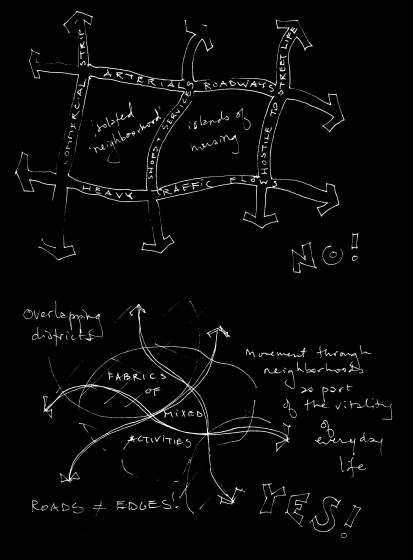 COMMERCIAL STRIP
ARTERIALS ROADWAYS
HOSTILE TO STREET LIFE
isolated
neighbourhood
SHOPS + SERVICES
islands of
housing
HEAVY TRAFFIC FLOWS
NO!
Overlapping
districts
FABRICS
OF
MIXED
ACTIVITIES
Movement through
neighborhoods
so part
of the vitality
of
everyday
life
ROADS ≠ EDGES!
YES!